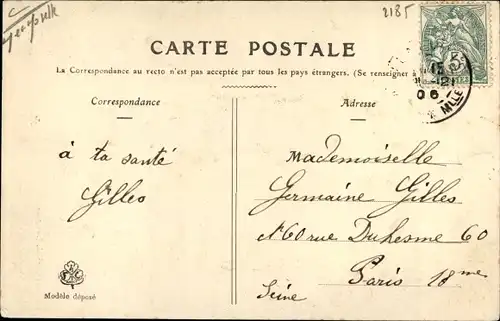 2185
CARTE POSTALE
La Correspondance au recto n'est pas acceptée par tous les pays étrangers. (Se renseigner à
Correspondance
Adresse
à ta santé
Gilles
Mademoiselle
Germaine Gilles
N 60 rue Duhesme 60
Paris 18me
Seine
Modèle déposé
15
12
06